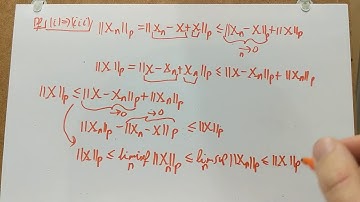 Pf, (i)⇒(iii) ||Xₙ||ₚ = ||Xₙ-X+X||ₚ ≤ ||Xₙ-X||ₚ + ||X||ₚ
n →0
||X||ₚ = ||X-Xₙ+Xₙ||ₚ ≤ ||X-Xₙ||ₚ + ||Xₙ||ₚ
||X||ₚ ≤ ||X-Xₙ||ₚ + ||Xₙ||ₚ
→0 →0
||Xₙ||ₚ - ||Xₙ-X||ₚ ≤ ||X||ₚ
||X||ₚ ≤ liminf ||Xₙ||ₚ ≤ limsup ||Xₙ||ₚ ≤ ||X||ₚ
n n